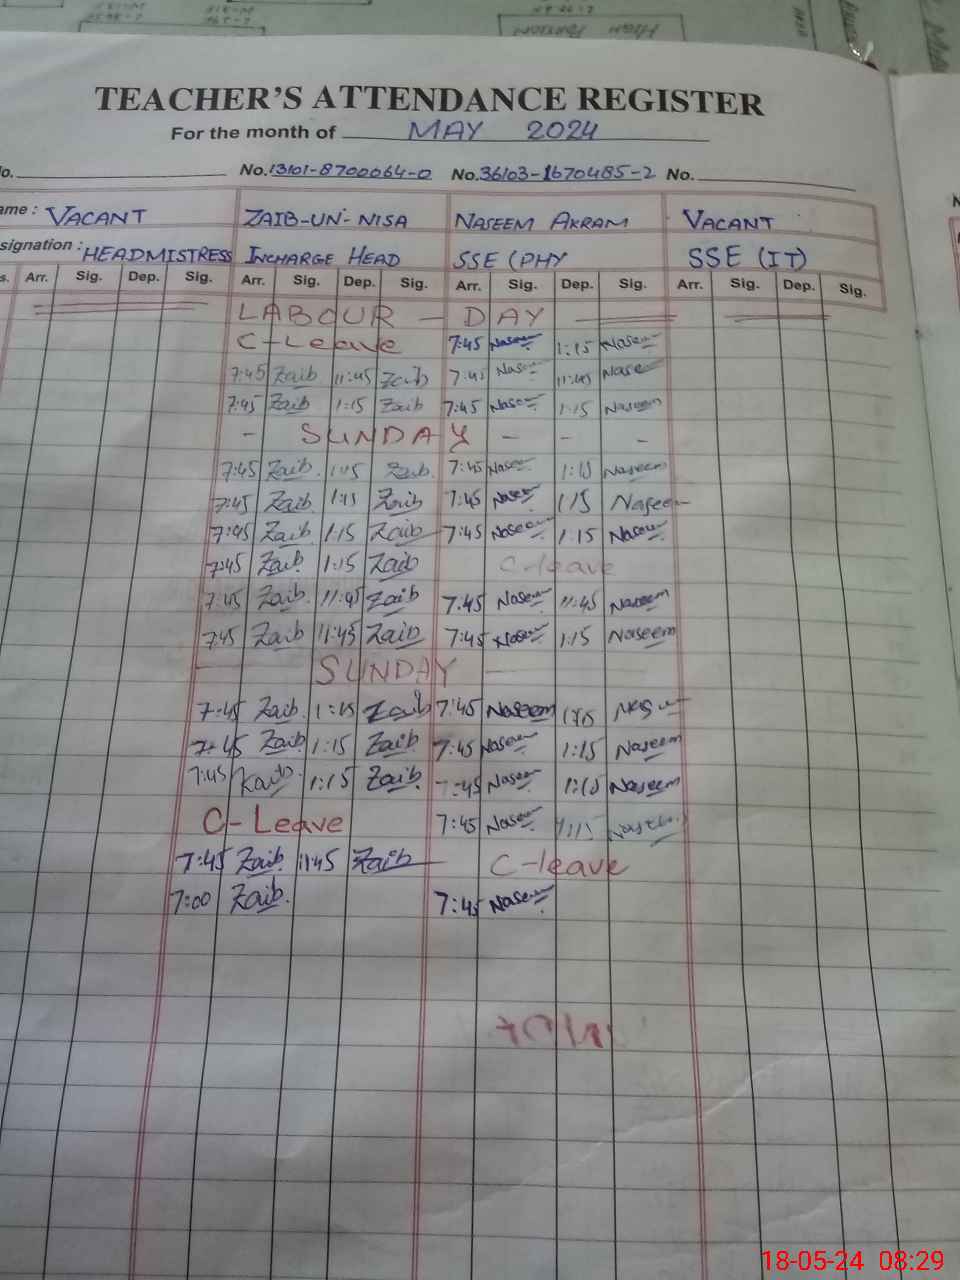 TEACHER'S ATTENDANCE REGISTER
For the month of MAY 2024
No. No.13101-8700064-0 No.36103-1670485-2 No.
ame : VACANT ZAIB-UN-NISA NASEEM AKRAM VACANT
signation : HEADMISTRESS INCHARGE HEAD SSE (PHY SSE (IT)
s. Arr. Sig. Dep. Sig. Arr. Sig. Dep. Sig. Arr. Sig. Dep. Sig. Arr. Sig. Dep. Sig.
LABOUR - DAY
C-Leave 7:45 Naseem 1:15 Naseem
7:45 Zaib 11:45 Zaib 7:45 Naseem 11:45 Naseem
7:45 Zaib 1:15 Zaib 7:45 Naseem 1:15 Naseem
- SUNDAY - - -
7:45 Zaib 1:15 Zaib 7:45 Naseem 1:15 Naseem
7:45 Zaib 1:15 Zaib 7:45 Naseem 1:15 Naseem
7:45 Zaib 1:15 Zaib 7:45 Naseem 1:15 Naseem
7:45 Zaib 1:15 Zaib C-leave
7:45 Zaib 11:45 Zaib 7:45 Naseem 11:45 Naseem
7:45 Zaib 11:45 Zaib 7:45 Naseem 1:15 Naseem
SUNDAY
7:45 Zaib 1:15 Zaib 7:45 Naseem 1:15
7:45 Zaib 1:15 Zaib 7:45 Naseem 1:15 Naseem
7:45 Zaib 1:15 Zaib 7:45 Naseem 1:15 Naseem
C-Leave 7:45 Naseem 1:15
7:45 Zaib 11:45 Zaib C-leave
7:00 Zaib 7:45 Naseem
18-05-24 08:29